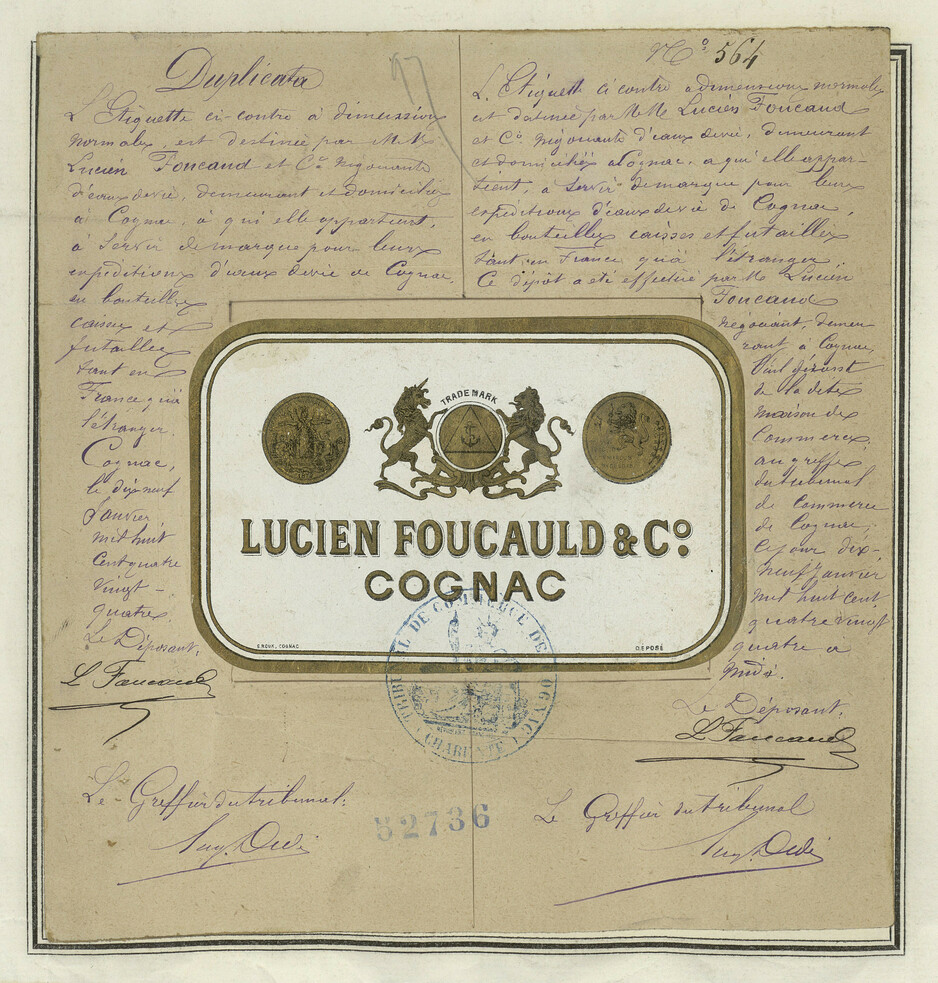 Duplicata
L'Etiquette ci-contre à dimensions
normales, est destinée par M.M.
Lucien Foucauld et Cº négociants
d'eaux de vie, demeurant et domiciliés
à Cognac, à qui elle appartient,
à servir de marque pour leurs
expéditions d'eaux de vie de Cognac,
en bouteilles
caisses et
futailles
tant en
France qu'à
l'étranger.
Cognac,
le dix neuf
Janvier
mil huit
cent quatre
vingt-
quatre.
Le Déposant,
L Foucauld
Le Greffier du tribunal.
Nº 564
L'Etiquette ci contre à dimensions normales
est destinée par M.M. Lucien Foucauld
et Cº négociants d'eaux de vie, demeurant
et domiciliés à Cognac, à qui elle appar-
tient, à servir de marque pour leurs
expéditions d'eaux de vie de Cognac,
en bouteilles caisses et futailles
tant en France qu'à l'étranger.
Ce dépôt a été effectué par M. Lucien
Foucauld
négociant, demeu
rant à Cognac,
de la dite
maison de
Commerce
au greffe
du tribunal
de Commerce
de Cognac,
ce jour dix-
neuf Janvier
mil huit cent
quatre vingt
quatre à
midi.
Le Déposant,
L Foucauld
Le Greffier du tribunal
TRADE MARK
LUCIEN FOUCAULD & Cº.
COGNAC
DEPOSÉ
TRIBUNAL DE COMMERCE DE COGNAC
CHARENTE
52736